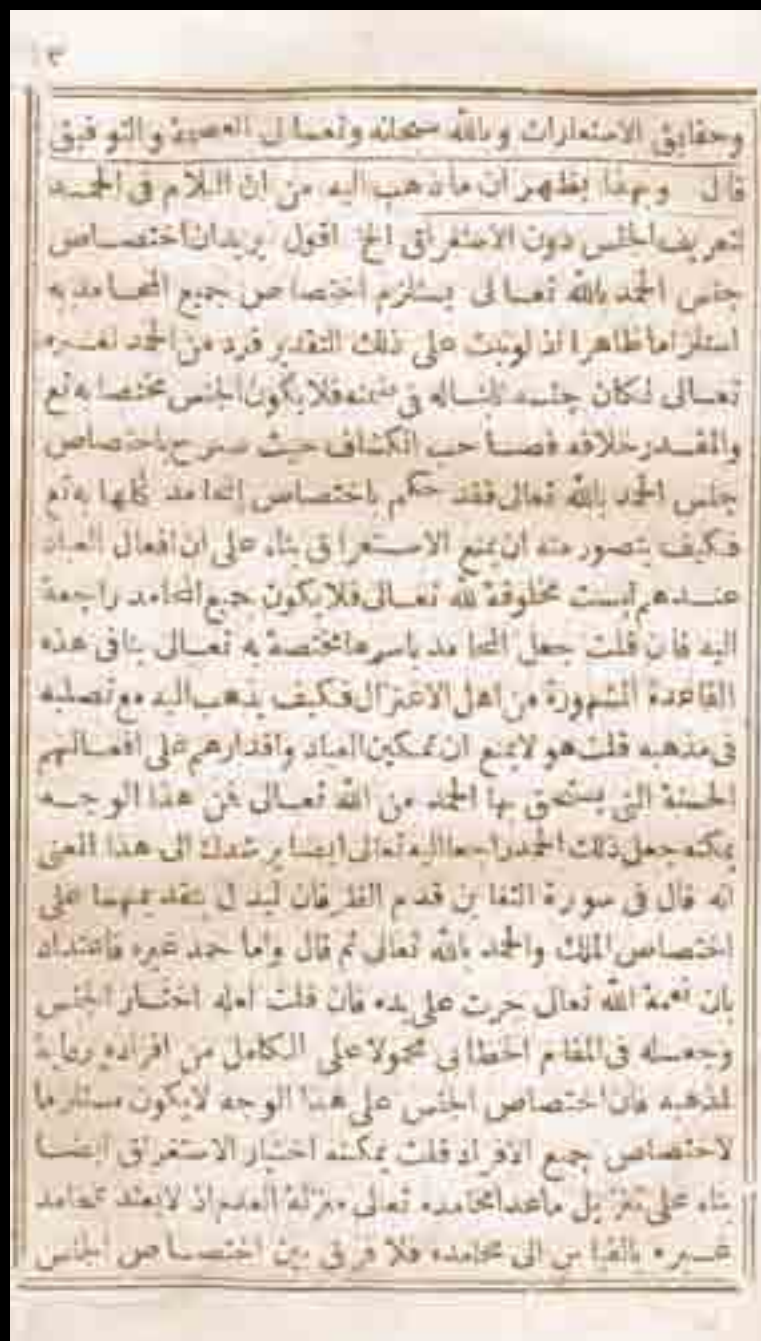 ٣
وحقايق الاستعارات وبالله سبحانه وتعالى العصمة والتوفيق
قال وبهذا يظهر ان ماذهب اليه من ان اللام فى الحمد
لتعريف الجنس دون الاستغراق الخ اقول يريدان اختصاص
جنس الحمد بالله تعالى يستلزم اختصاص جميع المحامد به
استلزاما ظاهرا اذ لوثبت على ذلك التقدير فرد من الحمد لغيره
تعالى لكان جنسه ثابتاله فى ضمنه فلايكون الجنس مختصا به تع
والمقدر خلافه فصاحب الكشاف حيث صرح باختصاص
جنس الحمد بالله تعالى فقد حكم باختصاص المحامد كلها به تع
فكيف يتصور منه ان يمنع الاستغراق بناء على ان افعال العباد
عندهم ليست مخلوقة لله تعالى فلايكون جميع المحامد راجعة
اليه فان قلت جعل المحامد باسرها مختصة به تعالى ينافى هذه
القاعدة المشهورة من اهل الاعتزال فكيف يذهب اليه مع تصلبه
فى مذهبه قلت هو لايمنع ان تمكين العباد واقدارهم على افعالهم
الحسنة التى يستحق بها الحمد من الله تعالى فمن هذا الوجه
يمكنه جعل ذلك الحمد راجعا اليه تعالى ايضا يرشدك الى هذا المعنى
انه قال فى سورة التغابن قدم الظرفان ليدل بتقديمهما على
اختصاص الملك والحمد بالله تعالى ثم قال واما حمد غيره فاعتداد
بان نعمة الله تعالى جرت على يده فان قلت لعله اختار الجنس
وجعله فى المقام الخطابى محمولا على الكامل من افراده رعاية
لمذهبه فان اختصاص الجنس على هذا الوجه لايكون مستلزما
لاختصاص جميع الافراد قلت يمكنه اختيار الاستغراق ايضا
بناء على تنزيل ماعدا محامده تعالى منزلة العدم اذ لايعتد بمحامد
غيره بالقياس الى محامده فلا فرق بين اختصاص الجنس